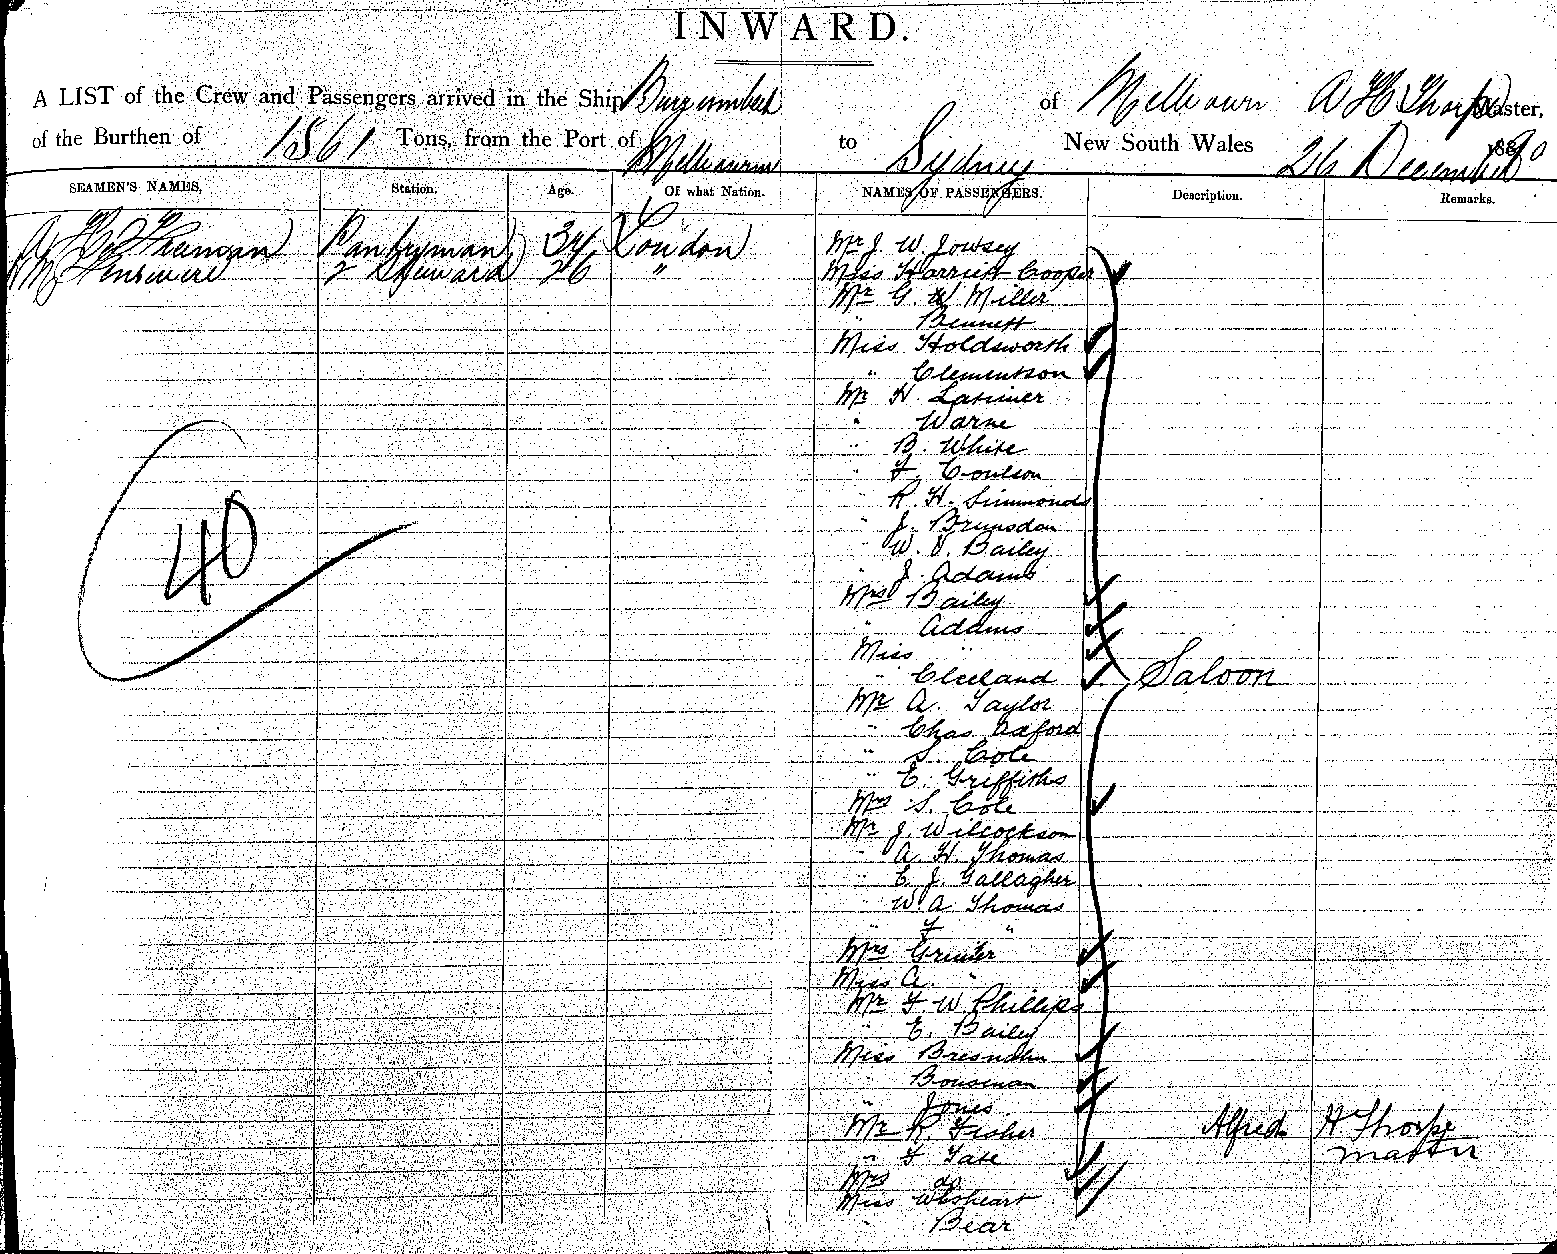 INWARD.
A LIST of the Crew and Passengers arrived in the Ship Burrumbeet of Melbourn A H Thorpe Master,
of the Burthen of 1861 Tons, from the Port of Melbourne to Sydney New South Wales 26 December 1890
SEAMEN'S NAMES. Station. Age. Of what Nation. NAMES OF PASSENGERS. Description. Remarks.
Pantryman 34 London
2 Steward 26 "
Mr J. W. Jowsey
Miss Harriett Cooper
Mr G. W Miller
" Bennett
Miss Holdsworth
" Clementson
Mr H. Latimer
" Warne
" B. White
" F. Coulson
R. H. Simmonds
" J. Brunsdon
" W. V. Bailey
" J. Adams
Mrs Bailey
" Adams
Miss "
" Cleeland
Saloon
Mr A. Taylor
" Chas. Oxford
" S. Cole
" E. Griffiths
Mrs S. Cole
Mr J. Wilcockson
" A. H. Thomas
" E. J. Gallagher
" W. A. Thomas
" F "
Mrs Gruiter
Miss A. "
Mr F. W. Phillips
" E. Bailey
Miss Bresnahn
" Bouseman
" Jones
Mr R. Fisher
" F Tate
Mrs do
Miss Wisheart
Bear
40
Alfred H Thorpe
Master